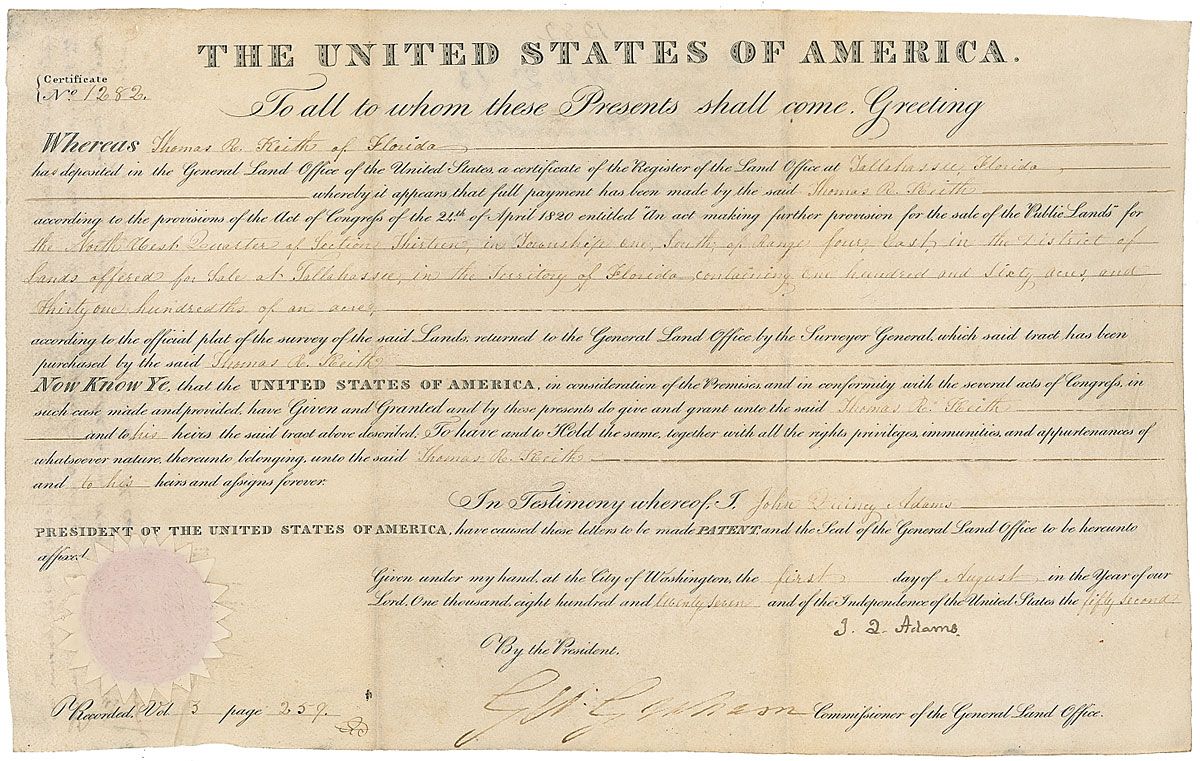 THE UNITED STATES OF AMERICA.
Certificate
No. 1282.
To all to whom these Presents shall come, Greeting
Whereas Thomas R. Keith of Florida
has deposited in the General Land Office of the United States a certificate of the Register of the Land Office at Tallahassee, Florida
whereby it appears that full payment has been made by the said Thomas R. Keith
according to the provisions of the Act of Congress of the 24th of April 1820 entitled "An act making further provision for the sale of the Public Lands" for
the North West Quarter of Section Thirteen, in Township one, South, of Range four, East, in the District of
lands offered for Sale at Tallahassee, in the Territory of Florida, containing one hundred and Sixty acres, and
thirty one hundredths of an acre,
according to the official plat of the survey of the said Lands, returned to the General Land Office by the Surveyor General, which said tract has been
purchased by the said Thomas R. Keith
Now Know Ye, that the UNITED STATES OF AMERICA, in consideration of the Premises, and in conformity with the several acts of Congress, in
such case made and provided, have Given and Granted and by these presents do give and grant unto the said Thomas R. Keith
and to his heirs the said tract above described: To have and to Hold the same, together with all the rights privileges, immunities, and appurtenances of
whatsoever nature, thereunto belonging, unto the said Thomas R Keith
and to his heirs and assigns forever.
In Testimony whereof, I, John Quincy Adams
PRESIDENT OF THE UNITED STATES OF AMERICA, have caused these letters to be made PATENT, and the Seal of the General Land Office to be hereunto
affixed.
Given under my hand, at the City of Washington, the first day of August, in the Year of our
Lord, One thousand, eight hundred and twenty seven and of the Independence of the United States the fifty second.
J. Q. Adams.
By the President.
Commissioner of the General Land Office.
Recorded, Vol 3 page 259.